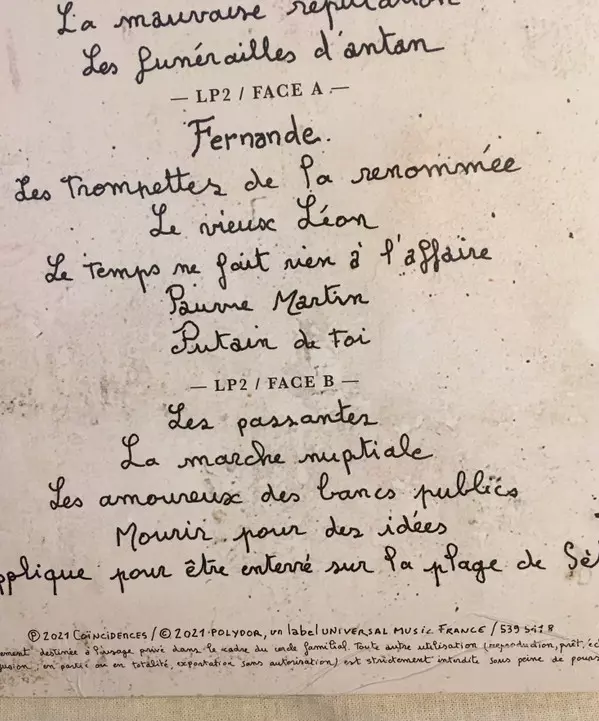 La mauvaise réputation
Les funérailles d'antan
— LP2 / FACE A —
Fernande.
Les Trompettes de la renommée
Le vieux Léon
Le temps ne fait rien à l'affaire
Pauvre Martin
Putain de toi
— LP2 / FACE B —
Les passantes
La marche nuptiale
Les amoureux des bancs publics
Mourir pour des idées
pplique pour être enterré sur la plage de Sè
℗ 2021 COÏNCIDENCES / © 2021 POLYDOR, un label UNIVERSAL MUSIC FRANCE / 539 541 8
ement destinée à l'usage privé dans le cadre du cercle familial. Toute autre utilisation (reproduction, prêt, éc
usion, en partie ou en totalité, exportation sans autorisation) est strictement interdite sous peine de pours